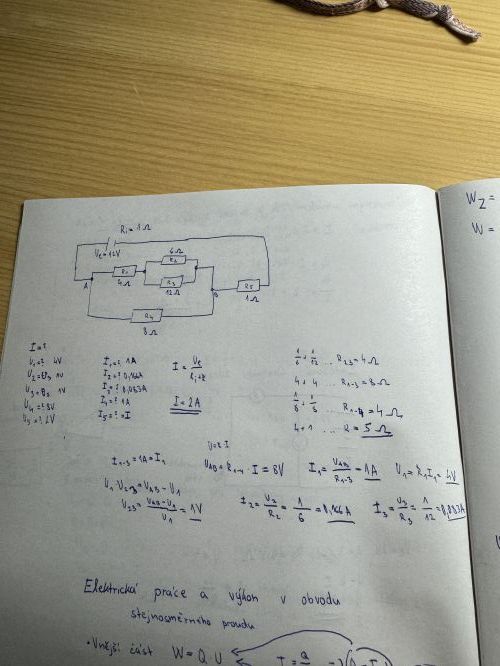 Ri = 1 Ω
Ue = 12V
6 Ω
R2
R1
4 Ω
R3
12 Ω
A
B
R5
1 Ω
R4
8 Ω
I = ?
U1 = ? 4V
U2 = U3 1V
U3 = ? 1V
U4 = ? 8V
U5 = ? 2V
I1 = ? 1A
I2 = ? 0,166A
I3 = ? 0,083A
I4 = ? 1A
I5 = ? = I
I = Ue / Ri + R
I = 2A
1/6 + 1/12 ... R23 = 4 Ω
4 + 4 ... R1-3 = 8 Ω
1/8 + 1/8 ... R1-4 = 4 Ω
4 + 1 ... R = 5 Ω
U = R · I
I1-3 = 1A = I1
UAB = R1-4 · I = 8V
I1 = UAB / R1-3 = 1A
U1 = R1 I1 = 4V
U23 = UAB - U1
= 1V
I2 = U2 / R2 = 1/6 = 0,166A
I3 = U3 / R3 = 1/12 = 0,083A
Elektrická práce a výkon v obvodu
stejnosměrného proudu
· Vnější část W = Q · U
Wz =
W =